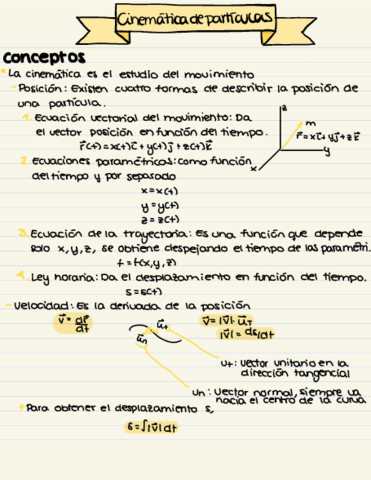 Cinemática de partículas
conceptos
• La cinemática es el estudio del movimiento
- Posición: Existen cuatro formas de describir la posición de
una partícula.
1. Ecuación vectorial del movimiento: Da
el vector posición en función del tiempo.
r⃗(t)=x(t)i⃗+y(t)j⃗+z(t)k⃗
z
m
r⃗=xi⃗+yj⃗+zk⃗
y
x
2. Ecuaciones paramétricas: como función
del tiempo y por separado
x=x(t)
y=y(t)
z=z(t)
3. Ecuación de la trayectoria: Es una función que depende
solo x,y,z, se obtiene despejando el tiempo de las paramétri.
f=f(x,y,z)
4. Ley horaria: Da el desplazamiento en función del tiempo.
s=s(t)
- Velocidad: Es la derivada de la posición
v⃗=dr⃗/dt
v⃗=|v⃗|·u⃗t
|v⃗|=ds/dt
u⃗t
u⃗n
ut: vector unitario en la
dirección tangencial
un: vector normal, siempre va
hacia el centro de la curva
+ Para obtener el desplazamiento s,
s=∫|v⃗|dt